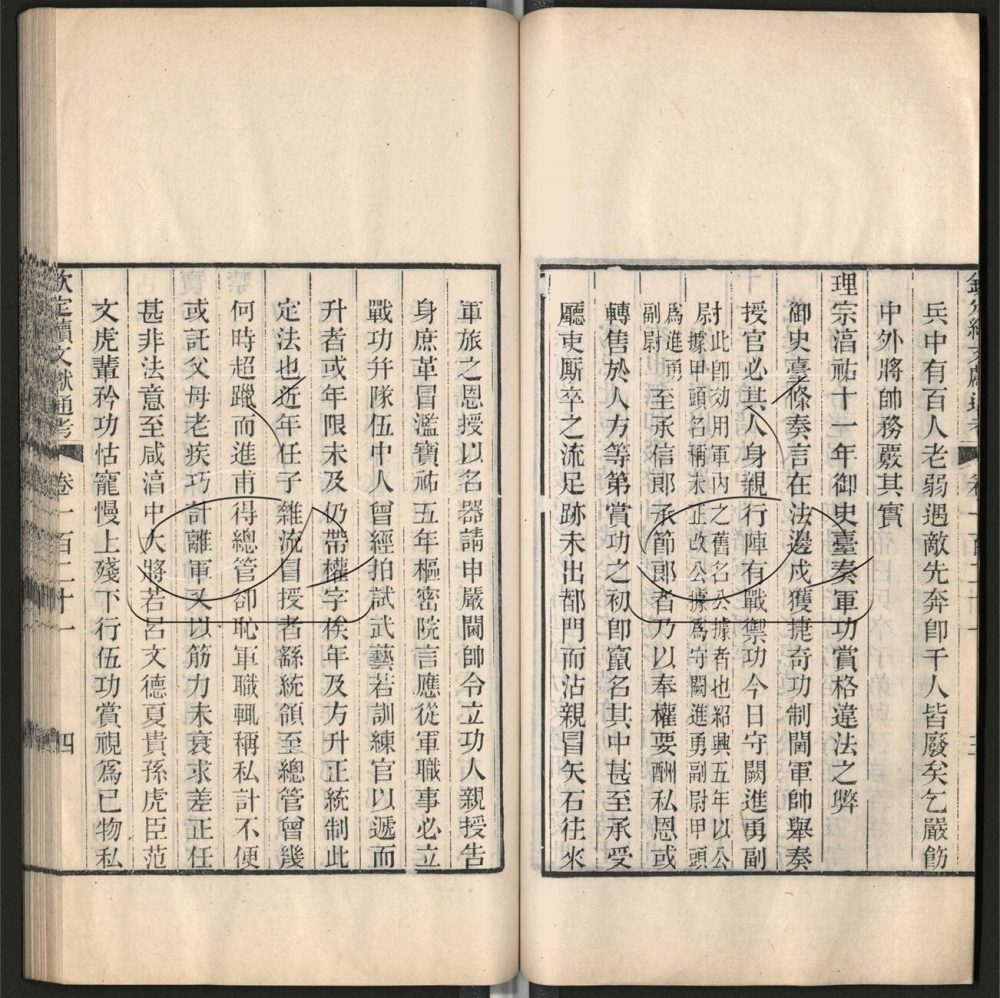 兵中有百人老弱遇敵先奔卽千人皆廢矣乞嚴飭
中外將帥務覈其實
理宗湻祐十一年御史臺奏軍功賞格違法之弊
御史臺條奏言在法邊戍獲捷奇功制閫軍帥舉奏
授官必其人身親行陣有戰禦功今日守闕進勇副
尉此卽効用軍內之舊名公據者也紹興五年以公
據甲頭名稱未正改公據爲守闕進勇副尉甲頭
爲進勇
副尉
至承信郎承節郎者乃以奉權要酬私恩或
轉售於人方等第賞功之初卽竄名其中甚至承受
廳吏厮卒之流足跡未出都門而沾親冒矢石往來
軍旅之恩授以名器請申嚴閫帥令立功人親授告
身庶革冒濫寶祐五年樞密院言應從軍職事必立
戰功幷隊伍中人曾經拍試武藝若訓練官以遞而
升者或年限未及仍帶權字俟年及方升正統制此
定法也近年任子雜流冒授者繇統領至總管曾幾
何時超躐而進甫得總管卻恥軍職輒稱私計不便
或託父母老疾巧計離軍又以筋力未衰求差正任
甚非法意至咸湻中大將若呂文德夏貴孫虎臣范
文虎輩矜功怙寵慢上殘下行伍功賞視爲己物私
欽定續文獻通考 卷一百二十一 四